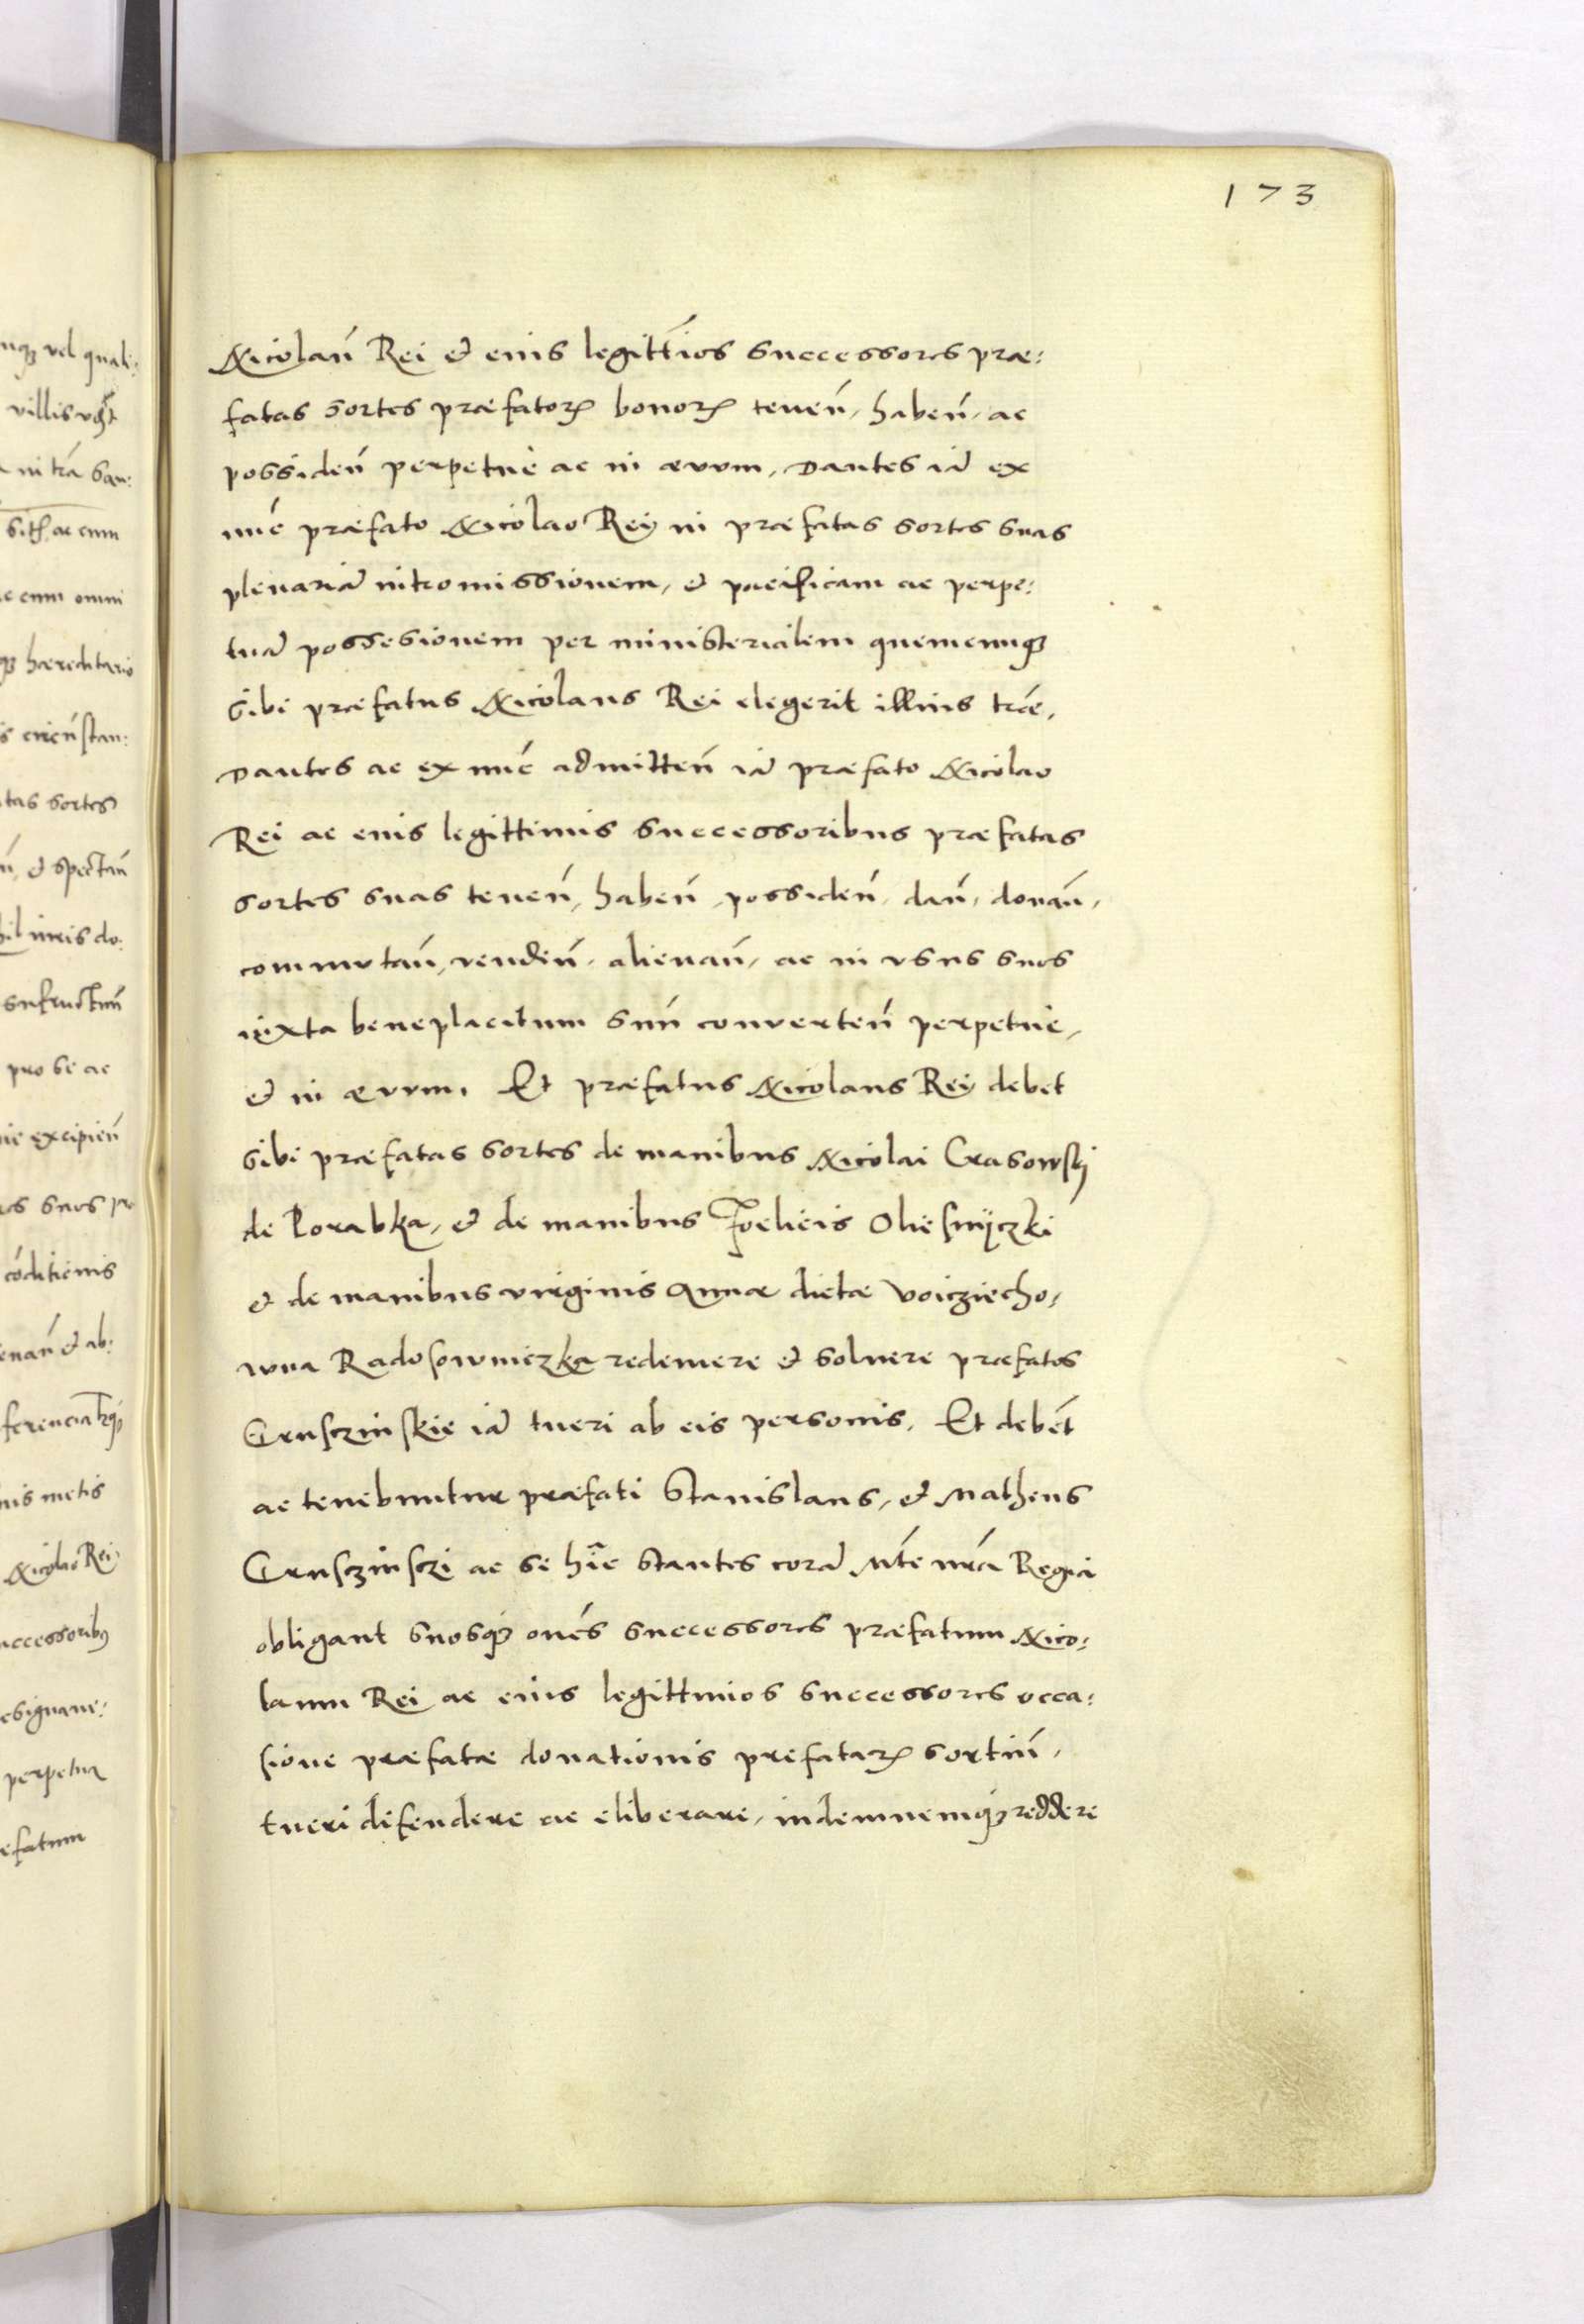 173
Nicolaū Rei et eius legittīos successores præ:
fatas sortes præfatorꝝ bonorꝝ tenen̄, haben̄, ac
possiden̄ perpetuè ac in ævvm, Dantes iā ex
nūc præfato Nicolao Reÿ in præfatas sortes suas
plenariā intromissionem, et pacificam ac perpe:
tuā possesionem per ministerialem quemcunqꝫ
sibi præfatus Nicolaus Rei elegerit illius træ,
Dantes ac ex nūc admitten̄ iā præfato Nicolao
Rei ac eius legittimis successoribus præfatas
sortes suas tenen̄, haben̄, possiden̄, dan̄, donan̄,
commvtan̄, venden̄, alienan̄, ac in vsus suos
iuxta beneplacitum suū converten̄ perpetuè,
et in ævvm, Et præfatus Nicolaus Reÿ debet
sibi præfatas sortes de manibus Nicolai Crasowskj
de Porabka, et de manibus Fœlicis Oliesnÿczki
et de manibus virginis Annæ dictæ Voicziecho,
wna Radosowniczka redemere et soluere præfatos
Crusczinskie iā tueri ab eis personis, Et debēt
ac tenebuntur præfati Stanislaus, et Matheus
Crusczinsczi ac se hīc stantes corā Mte nrā Regia
obligant suosqꝫ oēs successores præfatum Nico:
laum Rei ac eius legittimos successores occa:
sione præfatæ donationis prefatarꝝ sortiū,
tueri defendere ac eliberare, indemnemqꝫ reddere
nqꝫ vel quali:
ac cum
c cum omni
qꝫ hæreditario
s circūstan:
tas sortes
et spectan̄
iuris do:
pro se ac
excipien̄
suos
cōditionis
enan̄ et ab:
metis
Nicolao Rei
uccessoribꝰ
esignave:
perpetua
efatum